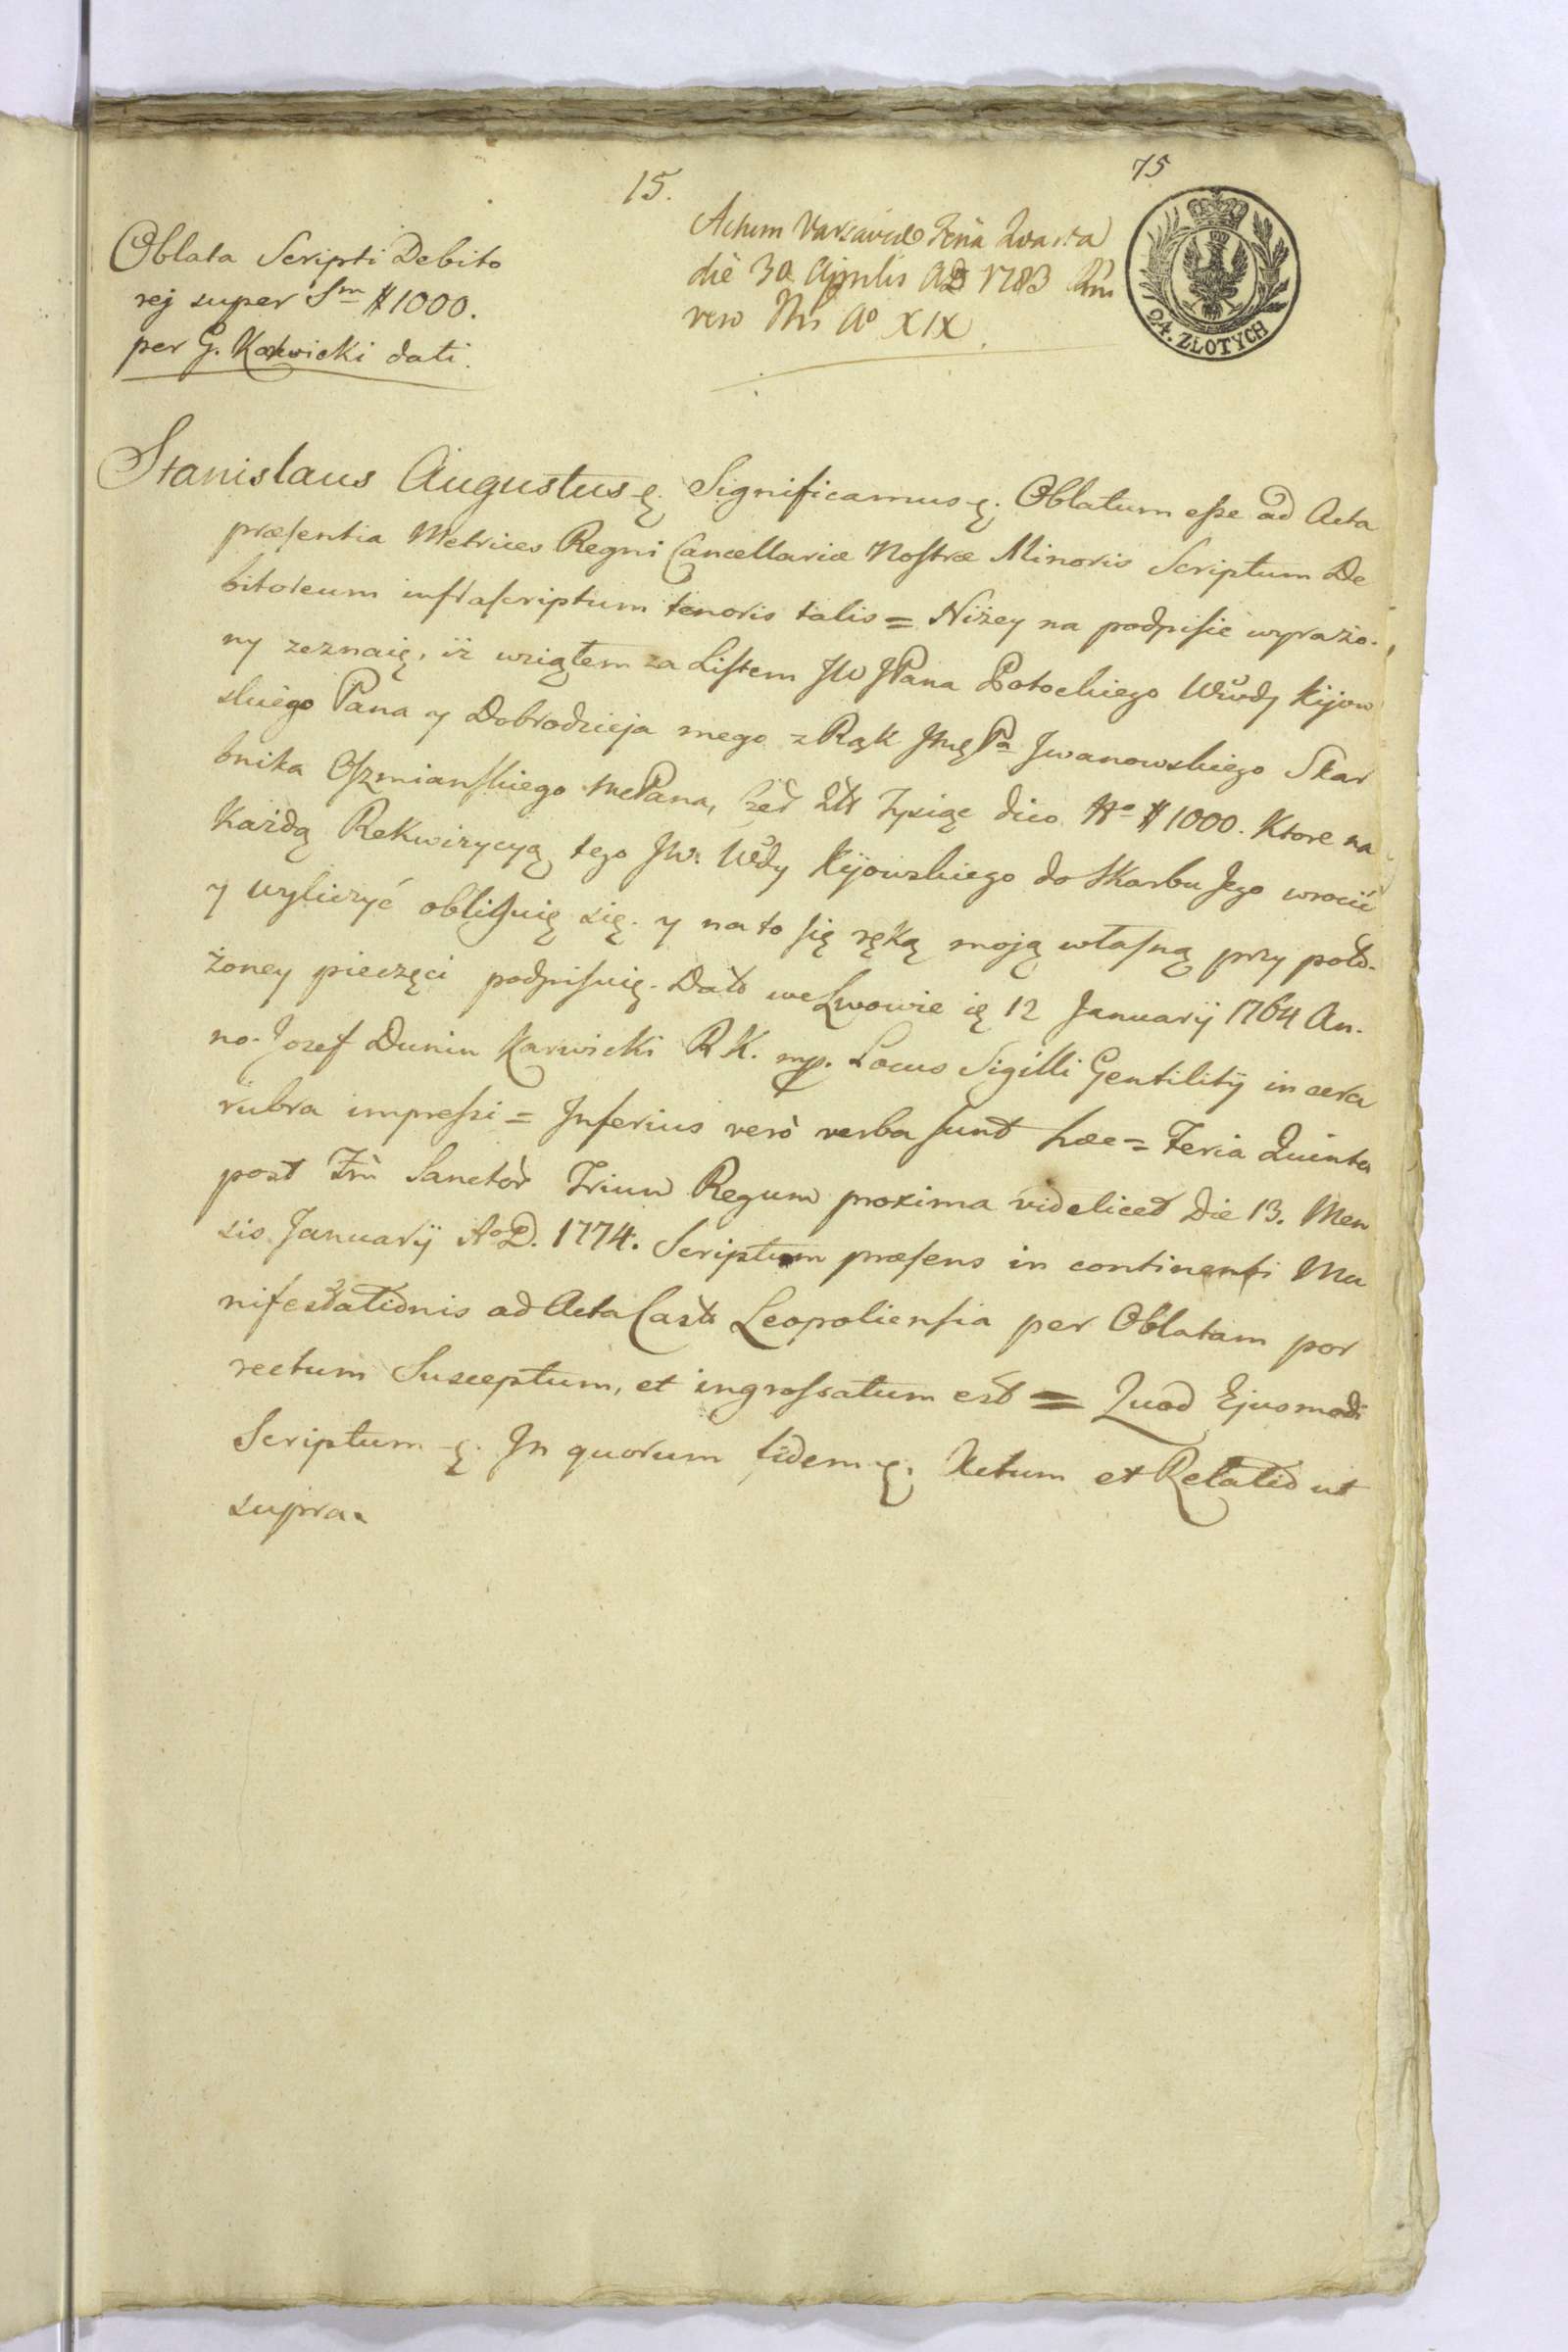 15.
75
Oblata Scripti Debito
rej super Sm # 1000.
per G. Karwicki dati.
Actum Varsaviæ Feria Quarta
die 30 Aprilis AD 1783
vero Ao XIX.
24. ZŁOTYCH
Stanislaus Augustus Significamus Oblatum eſse ad Acta
præſentia Metrices Regni Cancellariæ Noſtræ Minoris Scriptum De
bitoreum infraſcriptum tenoris talis = Niżey na podpiſie wyrażo-
ny zeznaię, iż wziąłem za Liſtem JW JPana Potockiego Wwdy Kijow
skiego Pana y Dobrodzieja mego z Rąk Jmę Pa Jwanowskiego Skar
bnika Oſzmianſkiego mePana, Tysiąc dico No # 1000. Ktore na
Każdą Rekwizycyą tego JW. Wdy Kijowskiego do Skarbu Jego wrocić
y wyliczyć obliguię się. y na to ſię ręką moją własną przy poło-
żoney pieczęci podpiſuię. Datt we Lwowie 12 Januarij 1764 An-
no. Jozef Dunin Karwicki R K. mp. Locus Sigilli Gentilitij in cera
rubra impreſsi = Inferius verò verba ſunt hæc = Feria Quinta
post Sanctor Trium Regum proxima videlicet Die 13. Men
sis Januarij AoD. 1774. Scriptum præſens in continenti Ma
nifestationis ad Acta Caſtr Leopolienſia per Oblatam por
rectum Susceptum, et ingroſsatum est = Quod Ejusmodi
Scriptum In quorum fidem Actum et Relatio ut
supra.